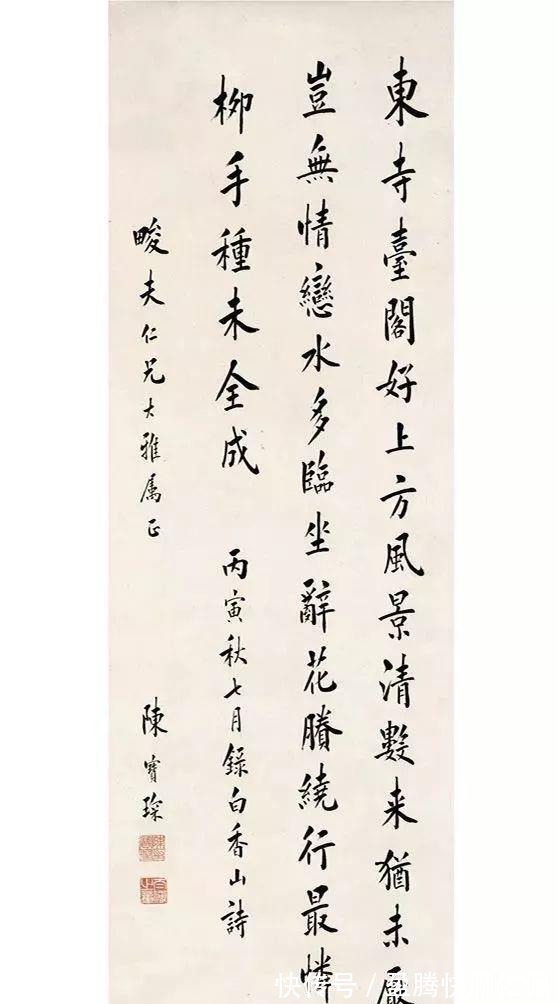 東寺臺閣好上方風景清數来猶未厭
豈無情戀水多臨坐辭花賸繞行最憐
柳手種未全成
丙寅秋七月錄白香山詩
畯夫仁兄大雅属正
陳寶琛
快传号 /